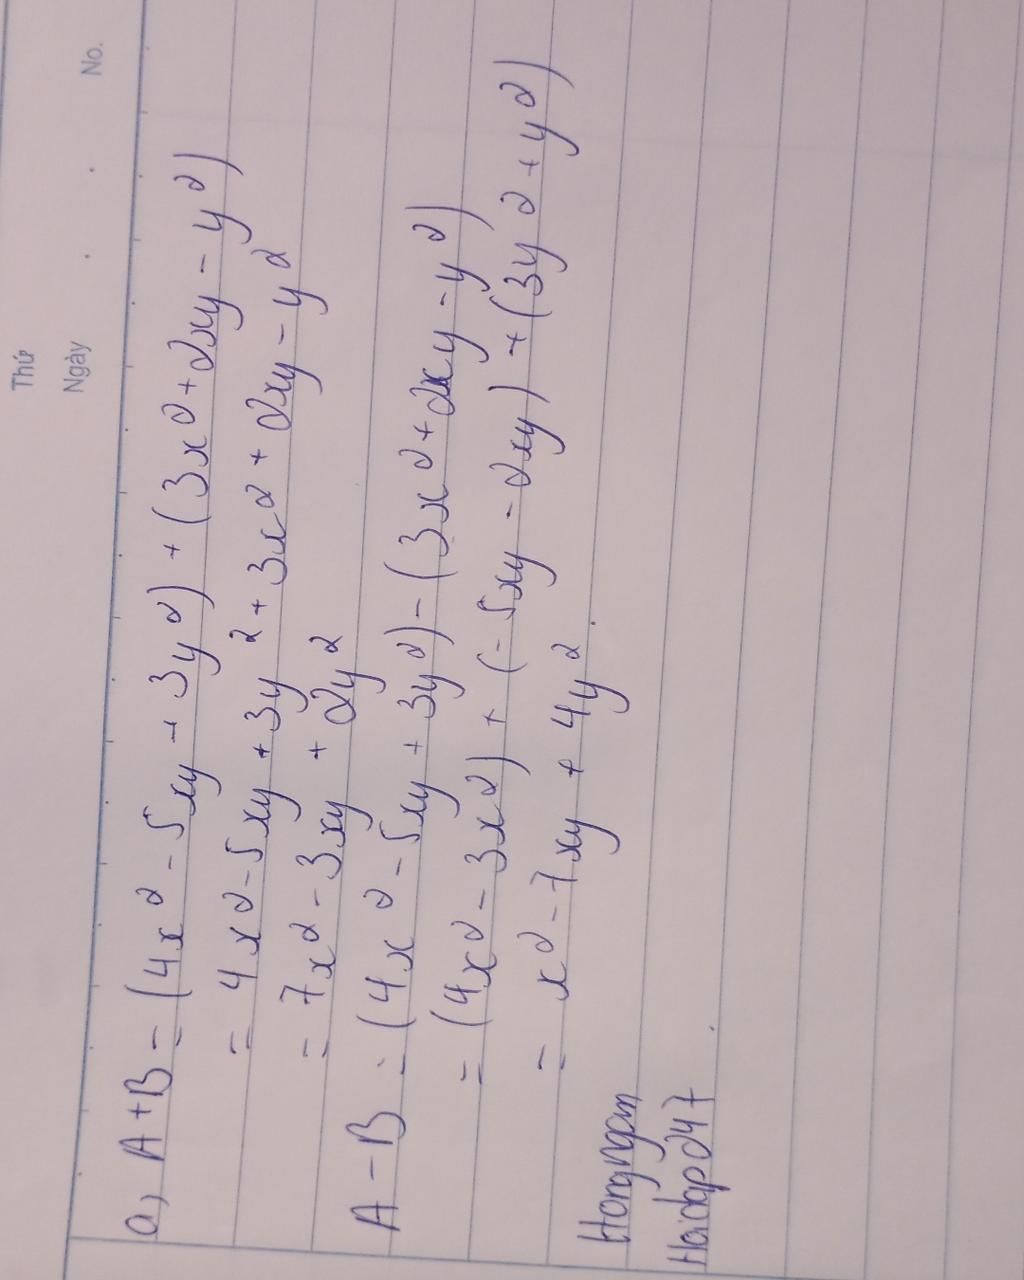 Thứ
Ngày . . No.
a, A+B = (4x² - 5xy + 3y²) + (3x² + 2xy - y²)
= 4x² - 5xy + 3y² + 3x² + 2xy - y²
= 7x² - 3xy + 2y²
A - B = (4x² - 5xy + 3y²) - (3x² + 2xy - y²)
= (4x² - 3x²) + (-5xy - 2xy) + (3y² + y²)
= x² - 7xy + 4y²
Hangngan
Hoidap247